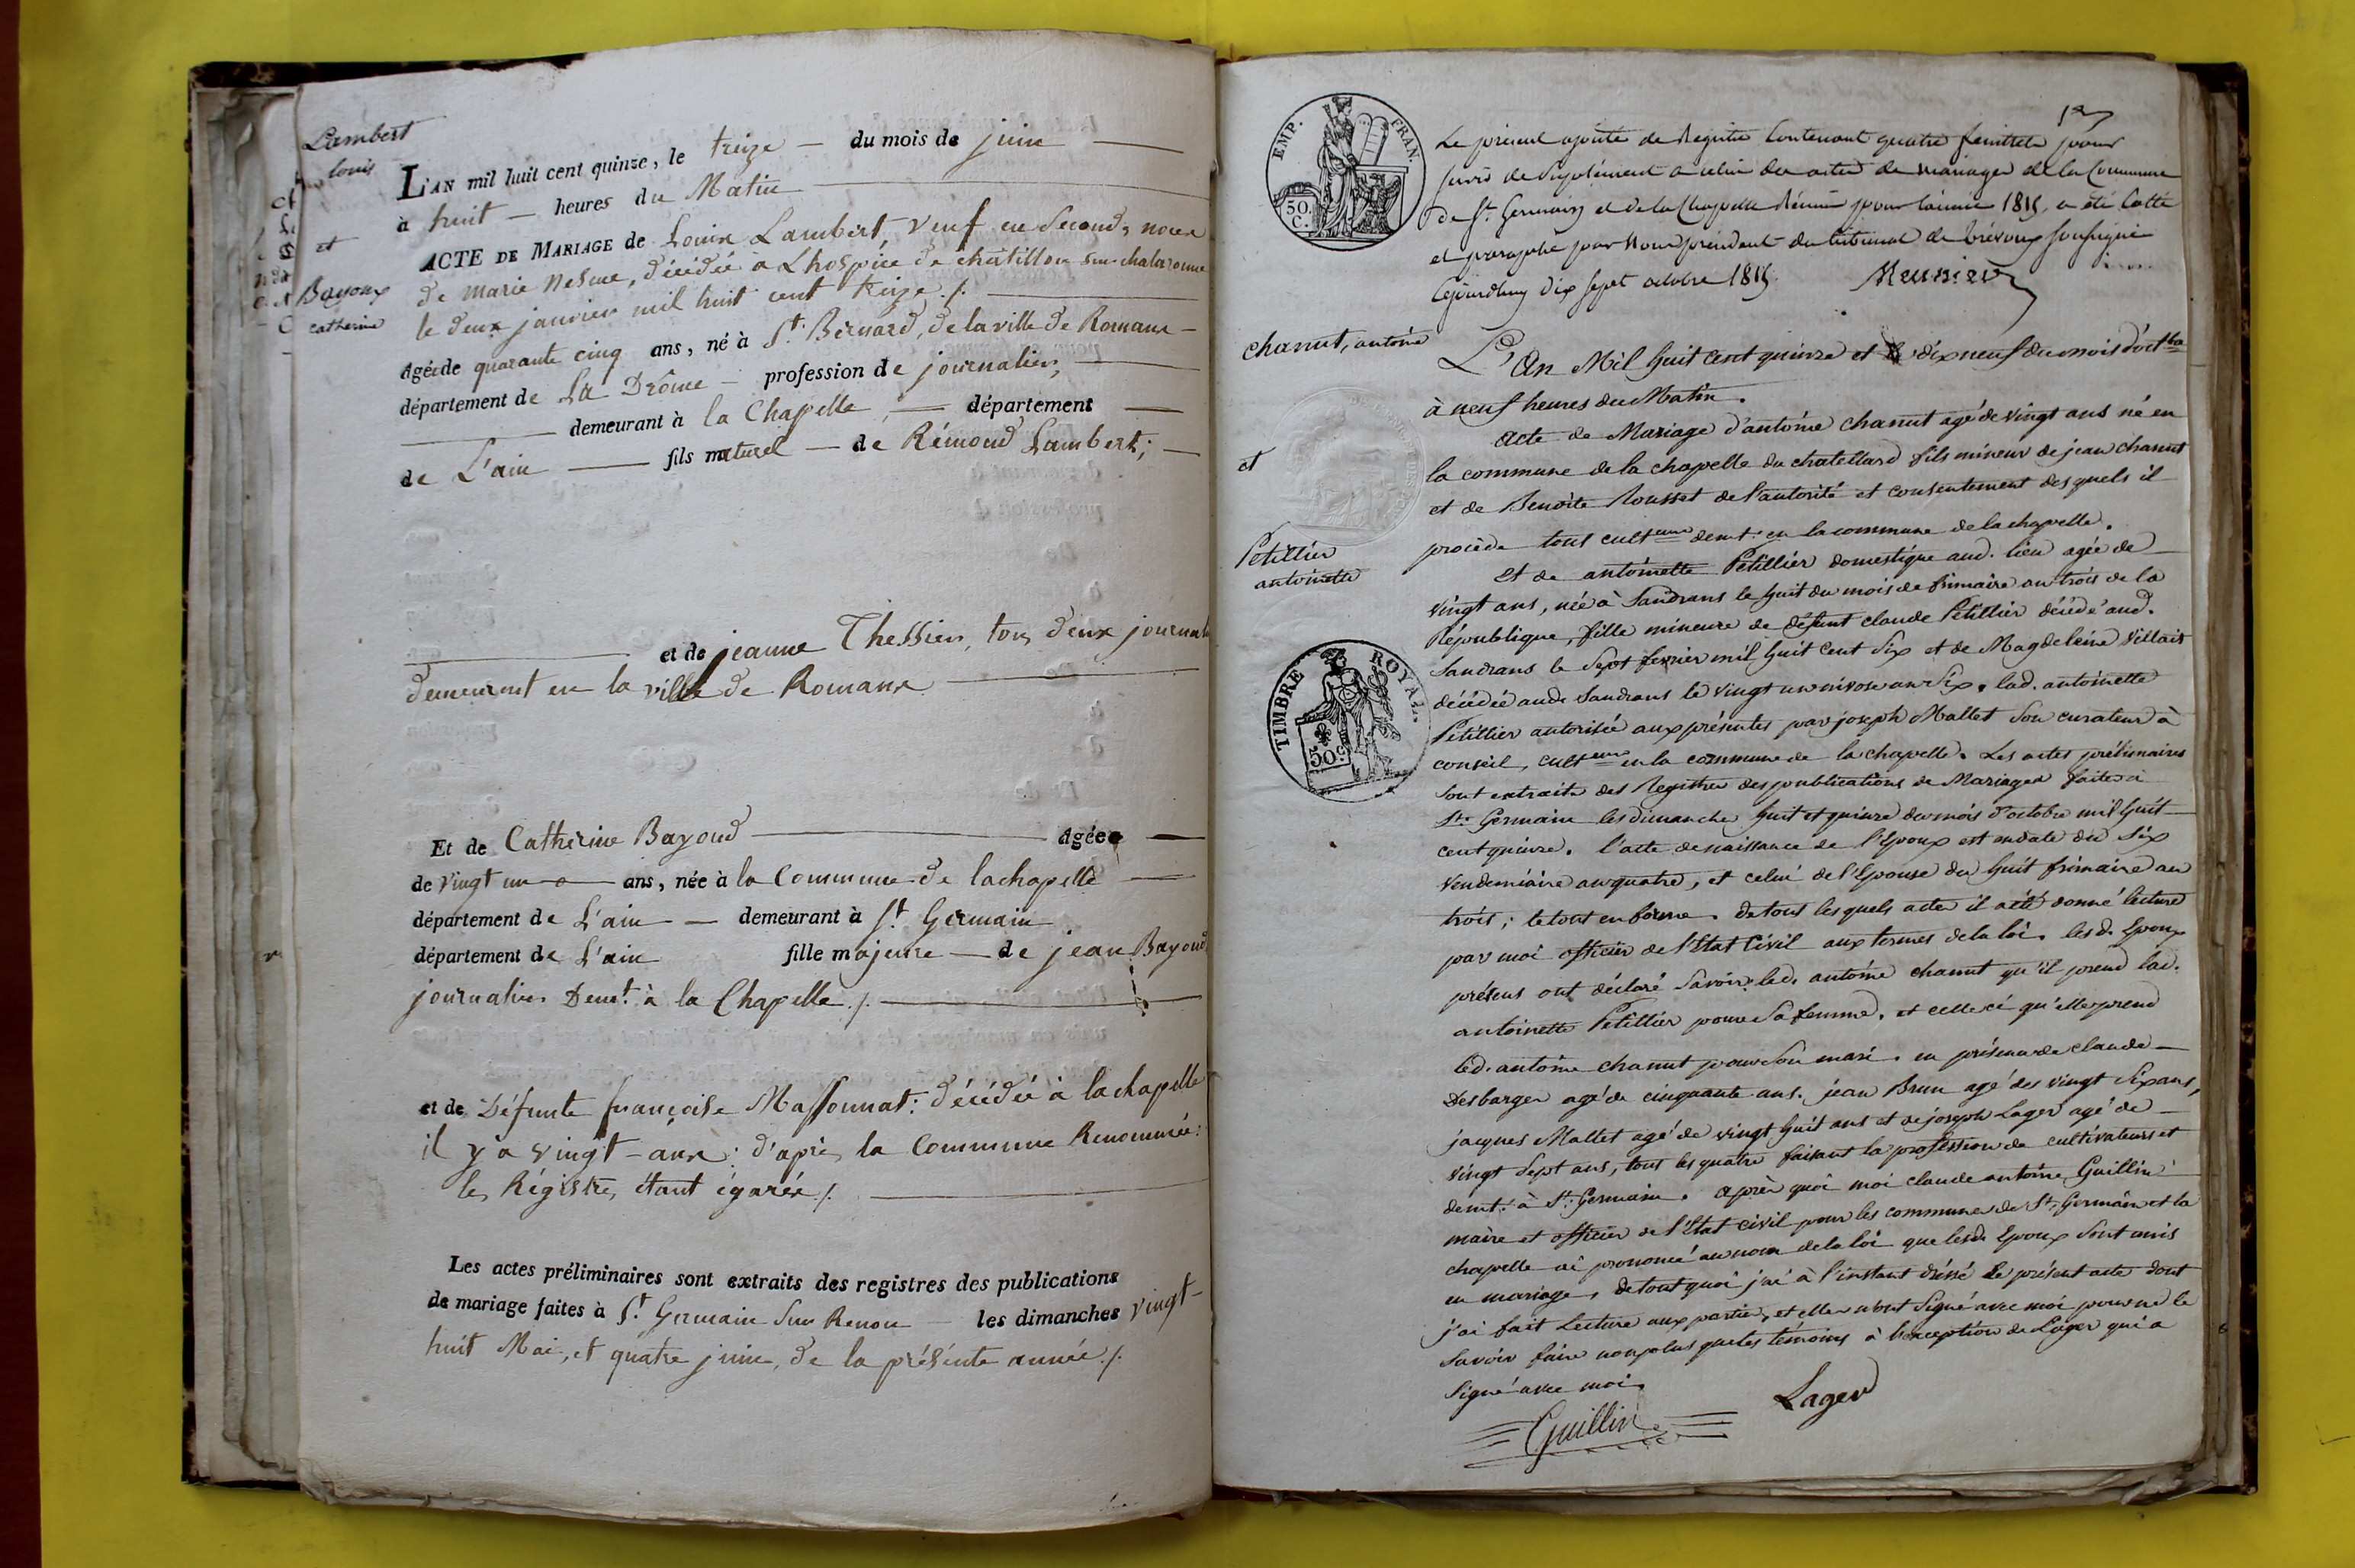 Lambert
louis
et
Bayoux
catherine
L'AN mil huit cent quinze, le treize — du mois de juin —
à huit — heures du Matin
ACTE DE MARIAGE de Louix Lambert veuf en Seconds noces
de marie Nesme, décédée à L'hospice de châtillon sur chalaronne
le deux janvier mil huit cent treize ./.
Agé de quarante cinq ans, né à St. Bernard, de la ville de Romanx
département de La Drôme — profession de journalier,
demeurant à la Chapelle, — département
de L'ain — fils naturel — de Rémond Lambert;
et de jeanne Thessier, tous deux journal
demeurant en la ville de Romanx
Et de Catherine Bayoud — Agée
de vingt un — ans, née à la Commune de lachapelle
département de L'ain — demeurant à St. Germain
département de L'ain fille majeure — de jean Bayoud
journalier Demt. à la Chapelle ./.
et de Défunte françoise Massonnat: décédée à la chapelle
il y a vingt-anx: d'après la Commune Renommée:
les Régistres étant égaréx ./.
Les actes préliminaires sont extraits des registres des publications
de mariage faites à St. Germain Sur Renon — les dimanches vingt-
huit Mai, et quatre juin, de la présente année ./.
EMP. FRAN.
50.
C.
Le présent ajouté de Registre Contenant quatre feuillets pour
servir de Suplément a celui des actes de mariages de la Commune
de St. Germain et de la Chapelle Réunie pour l'année 1815, a été Cotté
et paraphé par Nous président du tribunal de trévoux soussigné
Cejourdhuy dix sept octobre 1815. Meunier
chanut, antoine
et
Petillier
antoinette
TIMBRE ROYAL.
50c.
L'An Mil huit Cent quinze et le dix neuf du mois d'octbre
à neuf heures du Matin.
Acte de Mariage d'antoine chanut agé de vingt ans né en
la commune de la chapelle du chatellard fils mineur de jean chanut
et de Benoite Rousset de l'autorité et consentement desquels il
procède tous culteurs demt. en la commune de la chapelle.
Et de antoinette Petillier domestique aud. lieu agée de
vingt ans, née à Sandrans le huit du mois de frimaire an trois de la
République, fille mineure de défunt claude Petillier décédé aud.
Sandrans le Sept fevrier mil huit Cent Six et de Magdeleine Villait
décédée aud. Sandrans le vingt un nivose an Six. lad. antoinette
Petillier autorisée aux présentes par joseph Mallet Son curateur à
conseil, culteur en la commune de la chapelle. Les actes prélimaires
sont extraits des Registres des publications de Mariages faites à
St. Germain les dimanche huit et quinze du mois d'octobre mil huit
cent quinze. l'acte de naissance de l'Epoux est en date du Six
vendemiaire an quatre, et celui de l'Epouse du huit frimaire an
trois; le tout en forme. de tous lesquels actes il a été donné lecture
par moi officier de l'Etat Civil aux termes de la loi. lesd. Epoux
présens ont déclaré Savoir led. antoine chanut qu'il prend lad.
antoinette Petillier pour Sa femme. et celle ci qu'elle prend
led. antoine chanut pour Son mari. en présence de claude
Desbarges agé de cinquante ans. jean Brun agé des vingt Six ans,
jacques Mallet agé de vingt huit ans et de joseph Lager agé de
vingt Sept ans, tous les quatre faisant la profession de cultivateurs et
demt. à St. Germain. après quoi moi claude antoine Guillin
maire et officier de l'Etat civil pour les communes de St. Germain et la
chapelle ai prononcé au nom de la loi que lesd. Epoux Sont unis
en mariage, de tout quoi j'ai à l'instant dréssé le présent acte dont
j'ai fait Lecture aux parties, et elles n'ont Signé avec moi pour ne le
Savoir faire non plus que les témoins à l'exception de Lager qui a
Signé avec moi.
Guillin
Lager